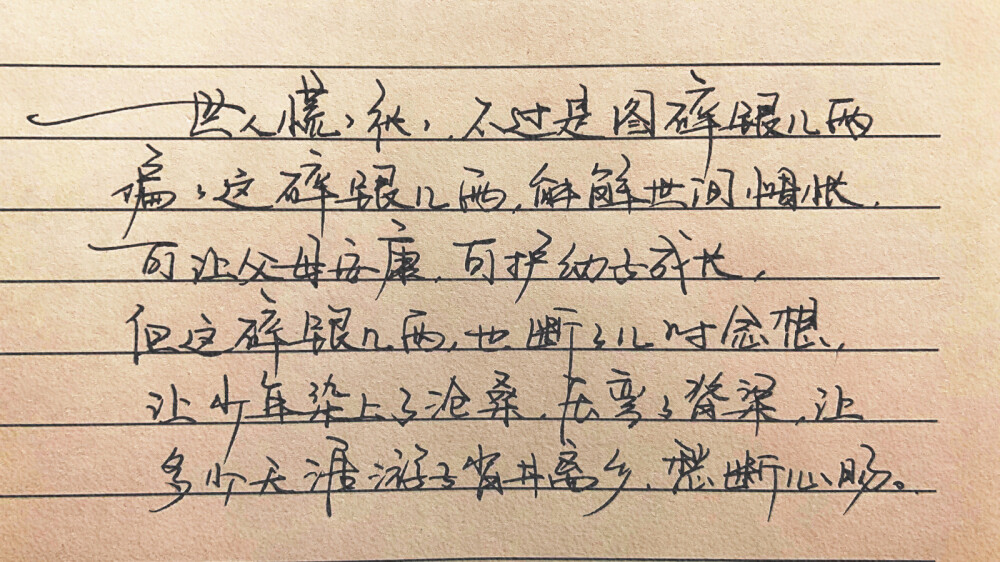 世人慌慌张张,不过是图碎银几两
偏偏这碎银几两,能解世间惆怅,
可让父母安康,可护幼子成长,
但这碎银几两,也断了儿时念想,
让少年染上了沧桑,压弯了脊梁,让
多少天涯游子背井离乡,愁断心肠。